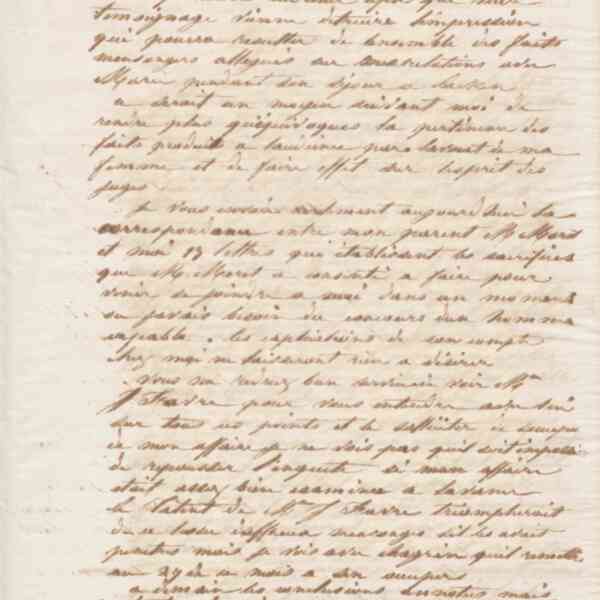 témoignage vienne détruire l'impression
qui pourra resulter de l'ensemble des faits
mensongers allegués sur mes relations avec
Marie pendant son séjour a
ce serait un moyen suivant moi de
rendre plus qu'équivoques la pertinence des
faits produits a l'audience par l'avocat de ma
femme et de faire effet sur l'esprit des
juges
Je vous envoie aujourd'hui la
correspondance entre mon parent M. Moret
et moi 13 lettres qui établissent les sacrifices
que M. Moret a consenti a faire pour
venir se joindre a moi dans un moment
ou j'avais besoin du concours d'un homme
capable. les explications de son compte
chez moi ne laisseront rien a désirer
Vous me rendrez bon service de voir Me
J Favre pour vous entendre avec lui
sur tous ces points et le solliciter de s'occuper
de mon affaire je ne vois pas qu'il soit impossi
de repousser l'enquete si mon affaire
etait assez bien examinée a l'avance
le talent de Me J Favre triompherait
de ce tissu d'affreux mensonges s'il les avait
mais je vois avec chagrin qu'il remette
au 27 de ce mois a s'en occuper
a demain les conclusions mais